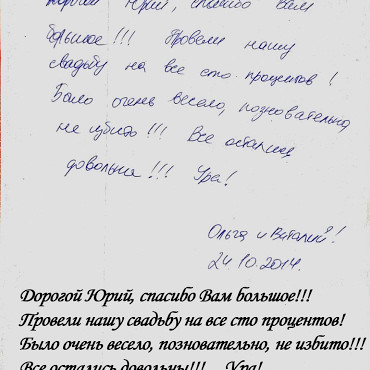 Дорогой Юрий, спасибо Вам
большое!!! Провели нашу
свадьбу на все сто процентов!
Было очень весело, позновательно,
не избито!!! Все остались
довольны!!! Ура!
Ольга и Виталий!
24.10.2014.
Дорогой Юрий, спасибо Вам большое!!!
Провели нашу свадьбу на все сто процентов!
Было очень весело, позновательно, не избито!!!
Все остались довольны!!! Ура!